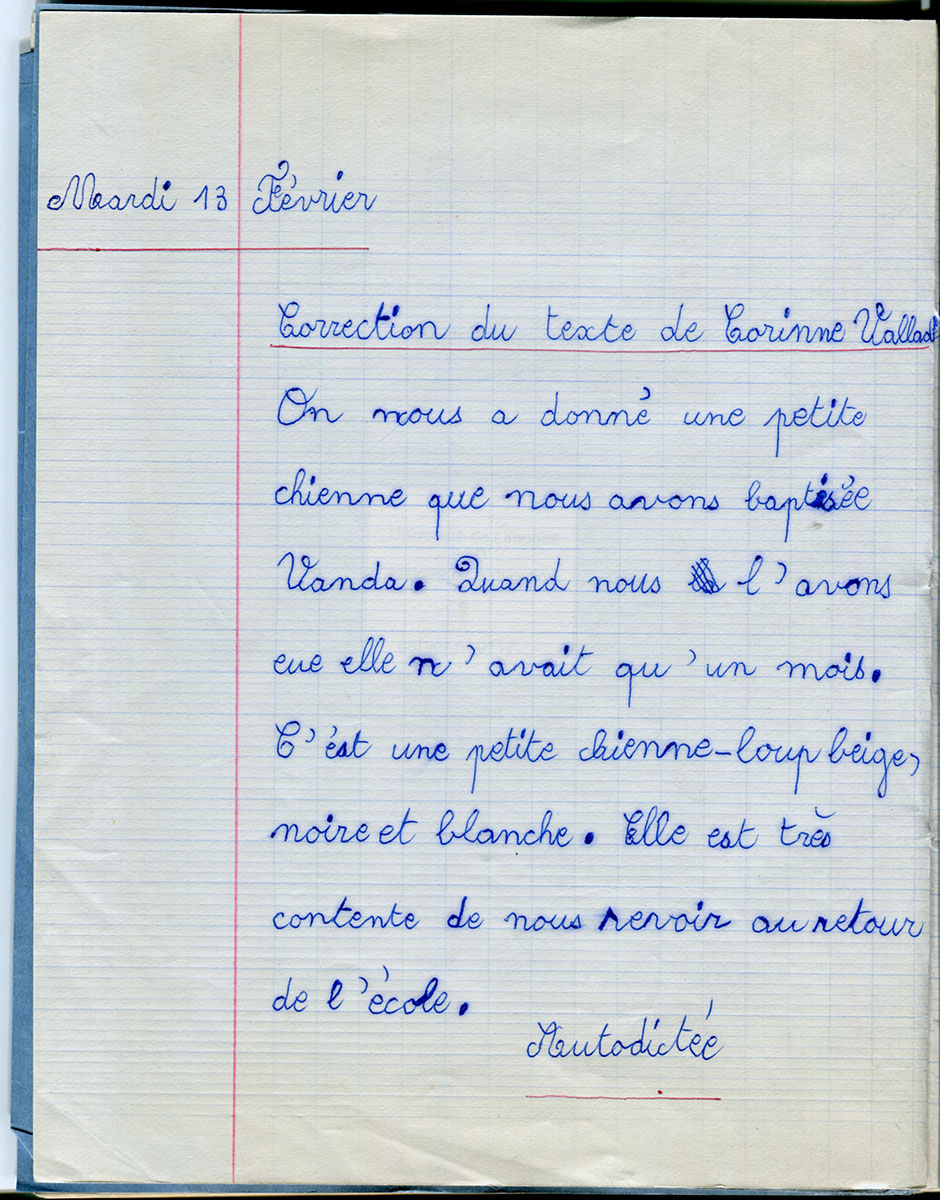 Mardi 13 Février
Correction du texte de Corinne Vallad
On nous a donné une petite
chienne que nous avons baptisée
Vanda. Quand nous l'avons
eue elle n'avait qu'un mois.
C'est une petite chienne-loup beige,
noire et blanche. Elle est très
contente de nous revoir au retour
de l'école.
Autodictée